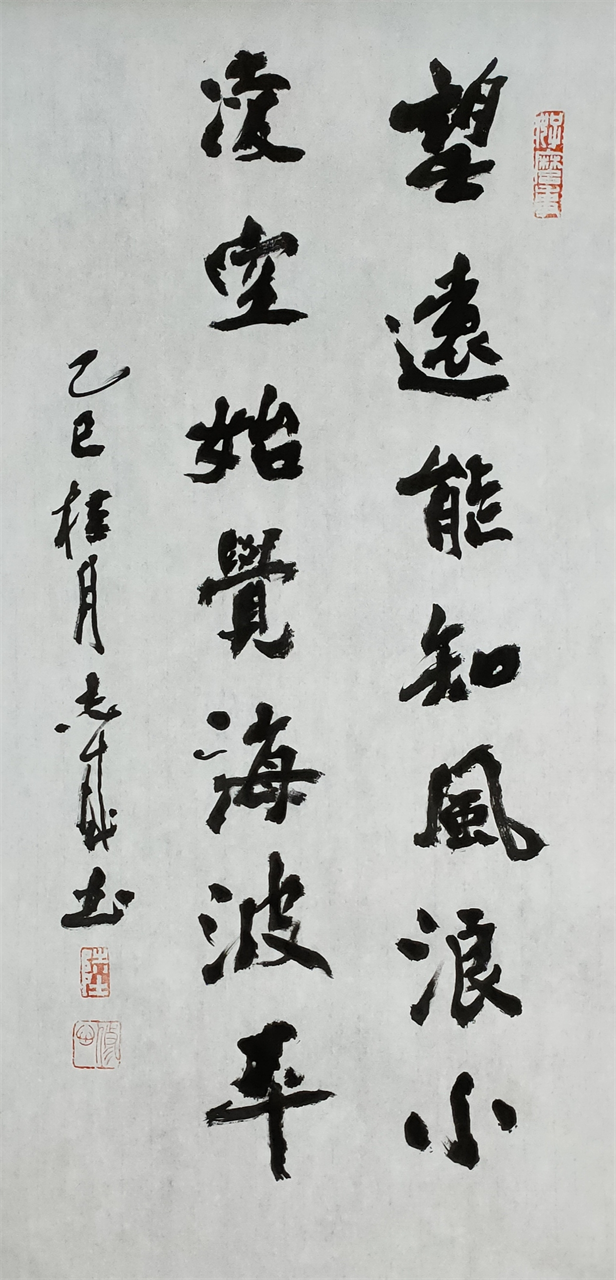 望遠能知風浪小
凌空始覺海波平
乙巳桂月志武书